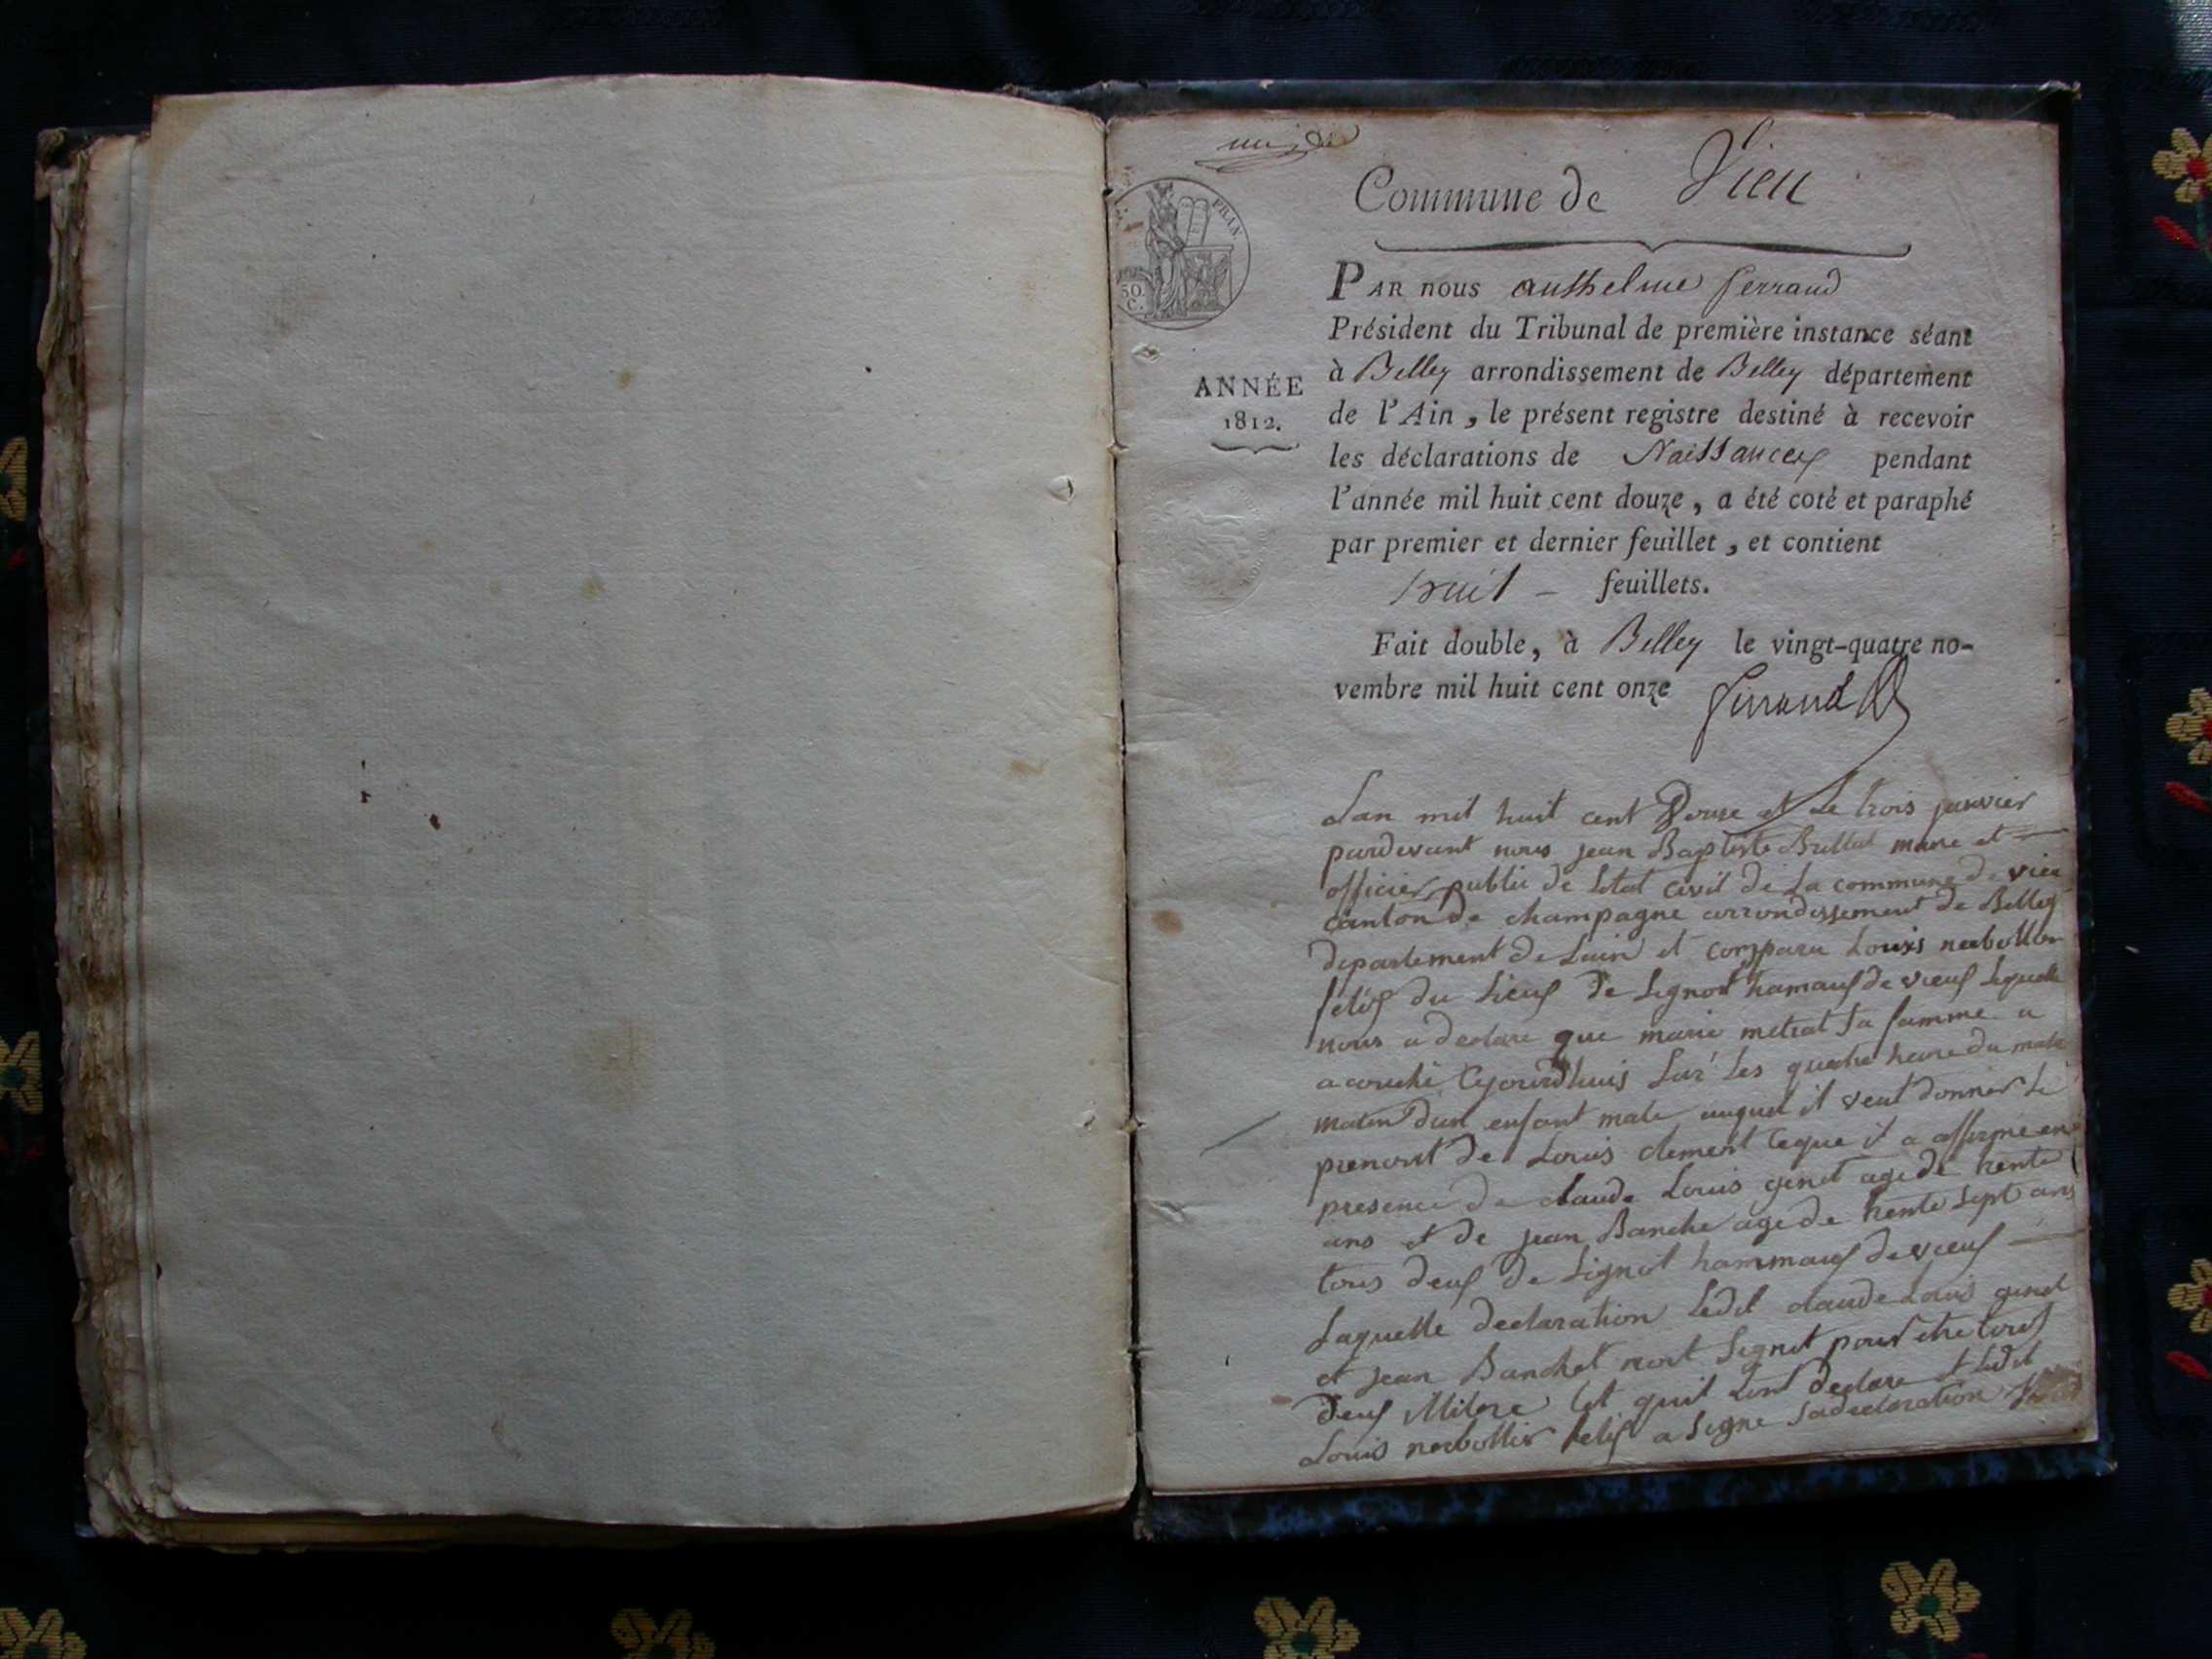 Commune de Vieu
FRAN.
50
C.
PAR nous anthelme ferrand
Président du Tribunal de première instance séant
à Belley arrondissement de Belley département
ANNÉE
1812.
de l'Ain, le présent registre destiné à recevoir
les déclarations de Naissances pendant
l'année mil huit cent douze, a été coté et paraphé
par premier et dernier feuillet, et contient
huit – feuillets.
Fait double, à Belley le vingt-quatre no-
vembre mil huit cent onze ferrand
Lan mil huit cent Douze et Le trois janvier
pardevant nous jean Baptiste Brillat maire et
officier public de Letat civil de La commune de vieu
canton de champagne arrondissement de Belley
departement de Lain et comparu Louis
du Lieuf de Lignot hamauf de vieuf Lequelle
nous a declare que marie metrat sa famme a
acouché Cejourdhuis Sur Les quatre heure du
matin dun enfant male auquel il veut donner Le
prenont de Louis clement Ceque il a affirme en
presence de claude Louis genet age de trente
ans et de jean Banche age de trente sept ans
tous deuf de Lignot hammauf de vieuf
Laquelle declaration Ledit claude Louis genet
et jean Banchet nont Signet pour etre
deuf et quil Lont declare et Ledit
Louis a Signe sa declaration